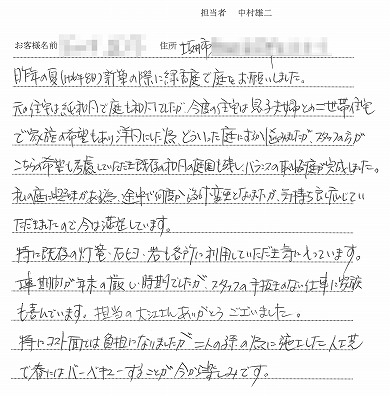 担当者　中村雄二
お客様名前　住所　坂井市
昨年の夏（H26年8月）新築の際に緑音庭で庭をお願いしました。
元の住宅は純和風で庭も和でしたが、今度の住宅は息子夫婦との二世帯住宅
で家族の希望もあり洋風にした為、どういった庭にするか悩みましたが、スタッフの方が
こちらの希望も考慮していただき既存の和風の庭園も残し、バランスの取れた庭が完成しました。
私の庭に興味がある為、途中で何度か設計変更となりましたが、気持ち良く応じてい
ただきましたので今は満足しています。
特に既存の灯篭・石臼・岩も各所に利用していただき気に入っています。
工事期間が年末の厳しい時期でしたが、スタッフの手抜きのない仕事に家族
も喜んでいます。担当の さんありがとうございました。
特にコスト面では負担になりましたが二人の孫の為に施工した人工芝
で春にはバーベキューすることが今から楽しみです。